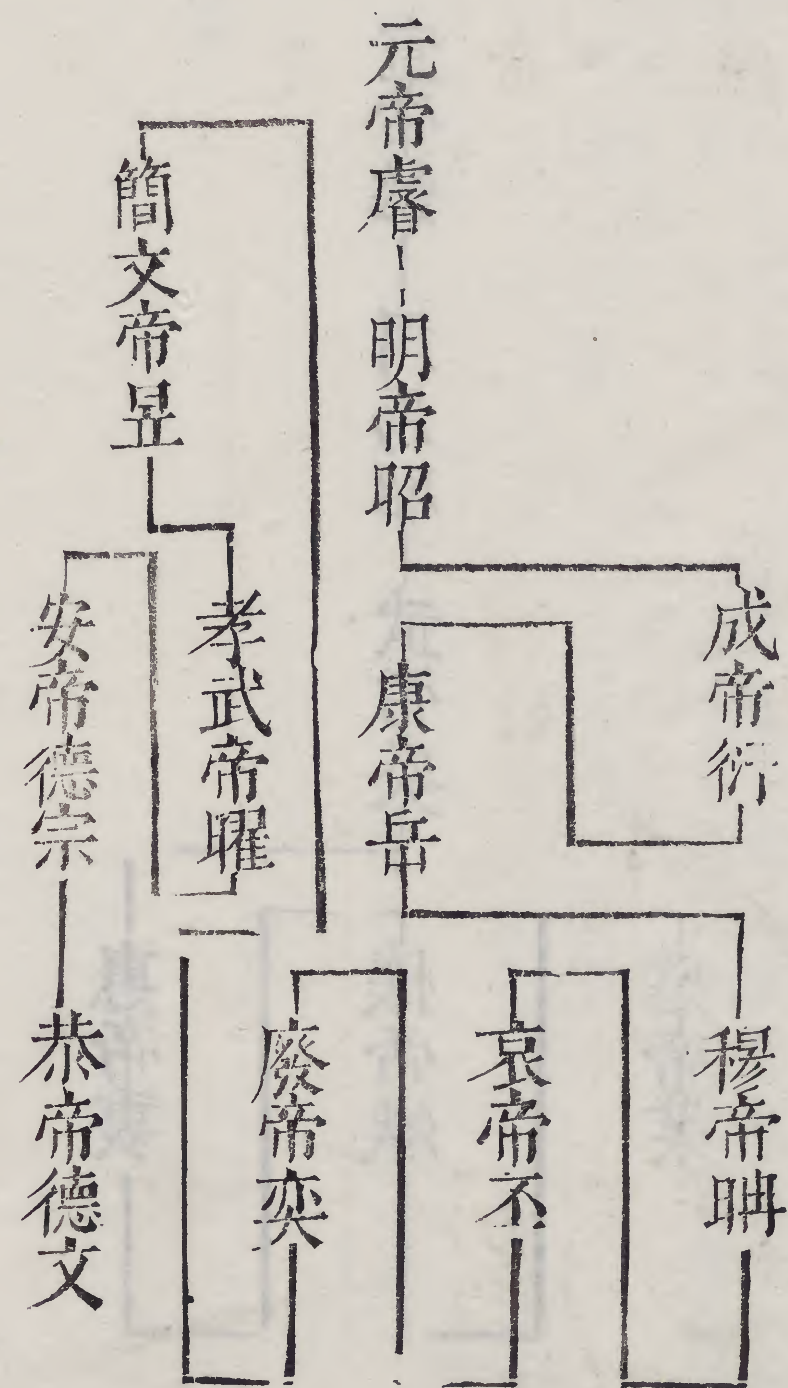 元帝睿
明帝昭
成帝衍
康帝岳
穆帝聃
哀帝丕
廢帝奕
簡文帝昱
孝武帝曜
安帝德宗
恭帝德文